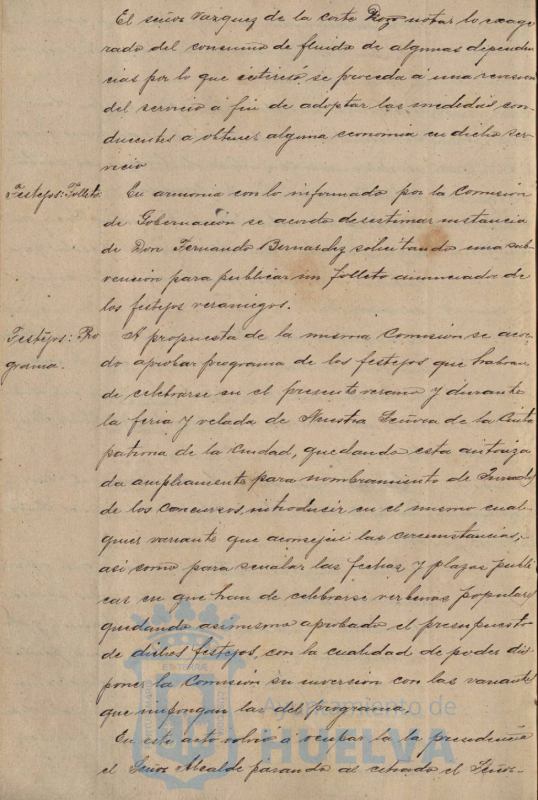 El señor Vazquez de la corte hizo notar lo exage
rado del consumo de fluido de algunas dependen
cias por lo que interesó se proceda á una revision
del servicio á fin de adoptar las medidas con-
ducentes a obtener alguna economia en dicho ser
vicio
Festejos: Folleto. En armonia con lo informado por la Comision
de Gobernación se acordo desestimar instancia
de Don Fernando Bernardez solicitando una sub
vención para publicar un folleto anunciador de
los festejos veraniegos.
Festejos: Pro A propuesta de la misma Comision se acor
grama. do aprobar programa de los festejos que habran
de celebrarse en el presente verano y durante
la feria y velada de Nuestra Señora de la Cinta
patrona de la Ciudad, quedando esta autoriza
da ampliamente para nombramiento de Jurados
de los concursos, introducir en el mismo cual
quier variante que aconsejen las circunstancias,
asi como para señalar las fechas y plazas publi
cas en que han de celebrarse verbenas populares
quedando asimismo aprobado el presupuesto
de dichos festejos, con la cualidad de poder dis
poner la Comision su inversión con las variantes
que impongan las del programa.
En este acto volvio á ocupar la presidencia
el Señor Alcalde pasando al estrado el Señor-
Ayuntamiento de
HUELVA